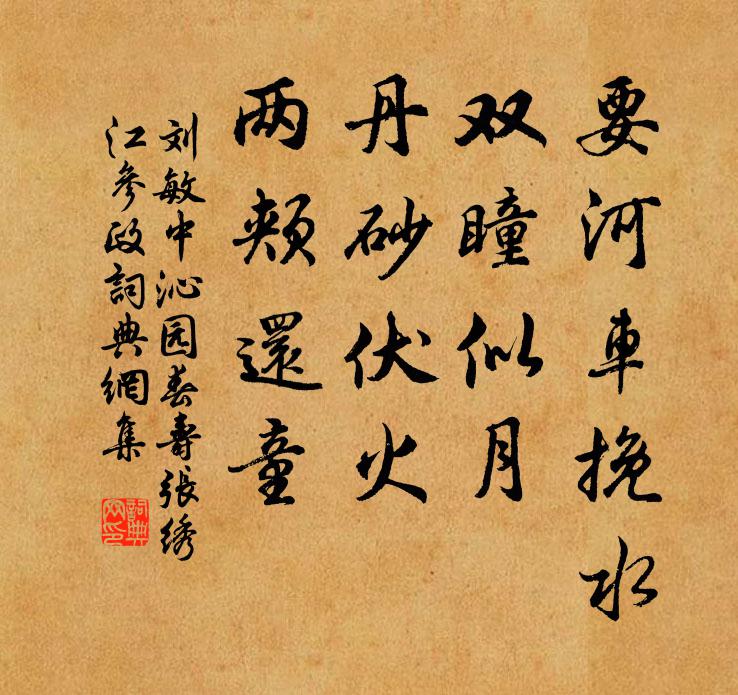 要河車挽水
双瞳似月
丹砂伏火
两颊還童
刘敏中沁园春壽張绣
江參政詞典網集
詞典
网印